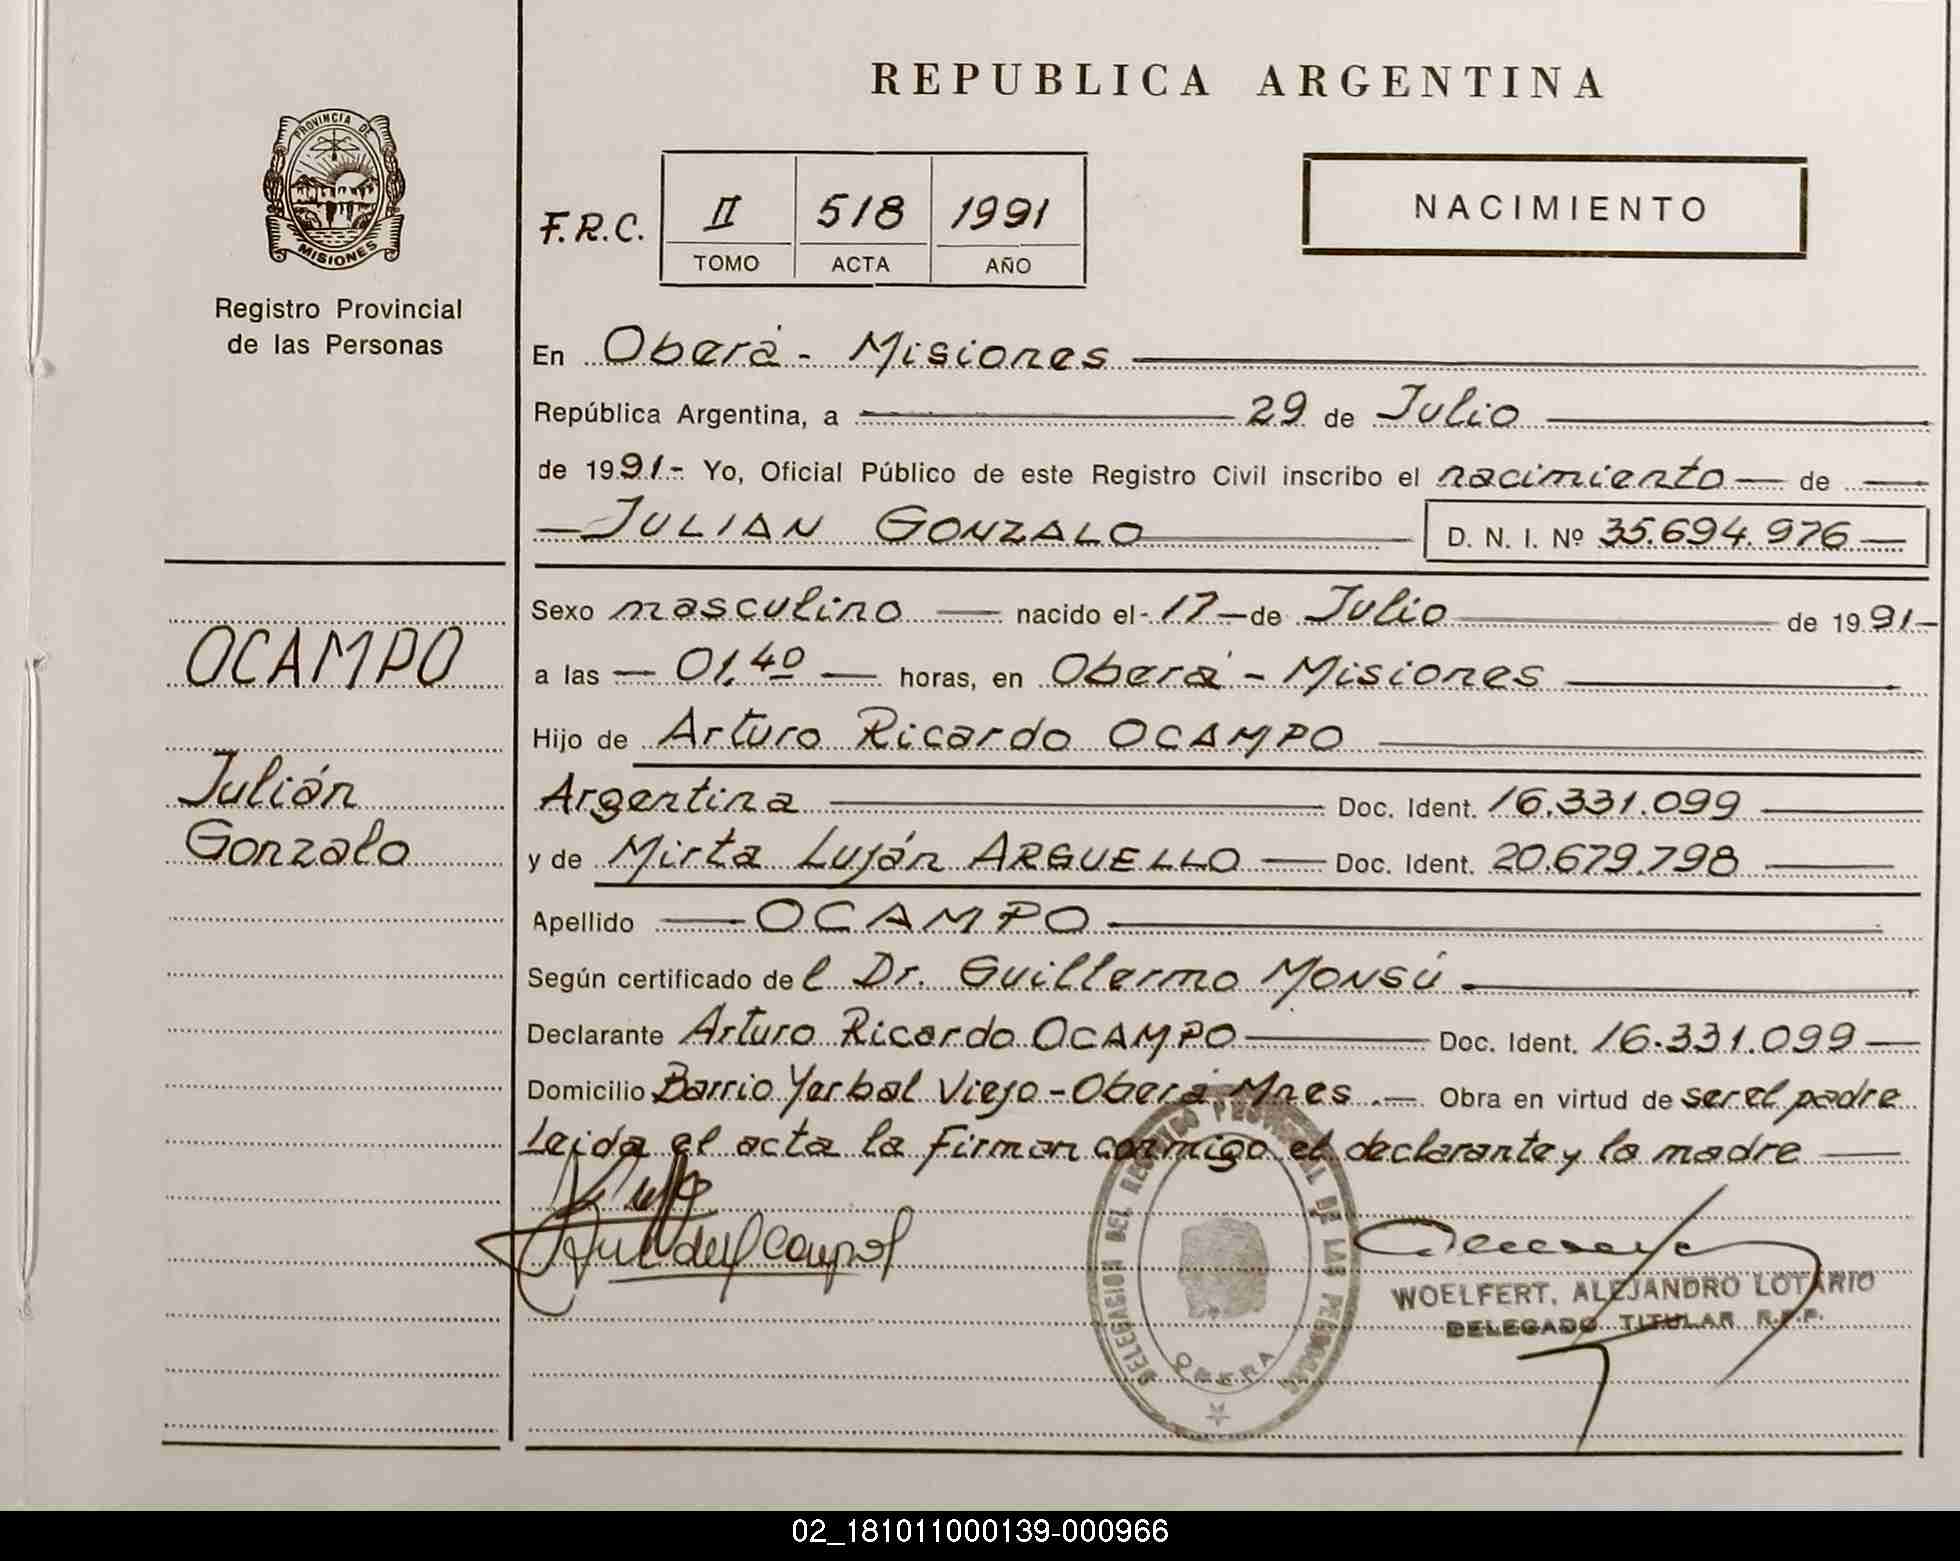 REPUBLICA ARGENTINA
PROVINCIA DE
MISIONES
Registro Provincial
de las Personas
F.R.C. II 518 1991
TOMO ACTA AÑO
NACIMIENTO
En Oberá - Misiones
República Argentina, a 29 de Julio
de 1991.- Yo, Oficial Público de este Registro Civil inscribo el nacimiento de
JULIAN GONZALO D. N. I. Nº 35.694.976
OCAMPO
Julián
Gonzalo
Sexo masculino nacido el - 17 - de Julio de 1991-
a las 01,40 horas, en Oberá - Misiones
Hijo de Arturo Ricardo OCAMPO
Argentina Doc. Ident. 16.331.099
y de Mirta Luján ARGUELLO Doc. Ident. 20.679.798
Apellido OCAMPO
Según certificado del Dr. Guillermo MONSÚ
Declarante Arturo Ricardo OCAMPO Doc. Ident. 16.331.099
Domicilio Barrio Yerbal Viejo - Oberá Mnes .- Obra en virtud de ser el padre
Leida el acta la firman conmigo el declarante y la madre
DELEGACION DEL REGISTRO PROVINCIAL DE LAS PERSONAS
OBERA
WOELFERT, ALEJANDRO LOTARIO
DELEGADO TITULAR R.P.P.
02_181011000139-000966